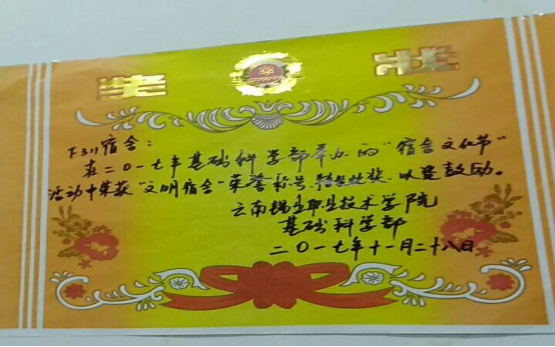 奖状
下311宿舍：
在二〇一七年基础科学部举办的“宿舍文化节”
活动中荣获“文明宿舍”荣誉称号，特发此奖，以资鼓励。
云南锡业职业技术学院
基础科学部
二〇一七年十一月二十八日